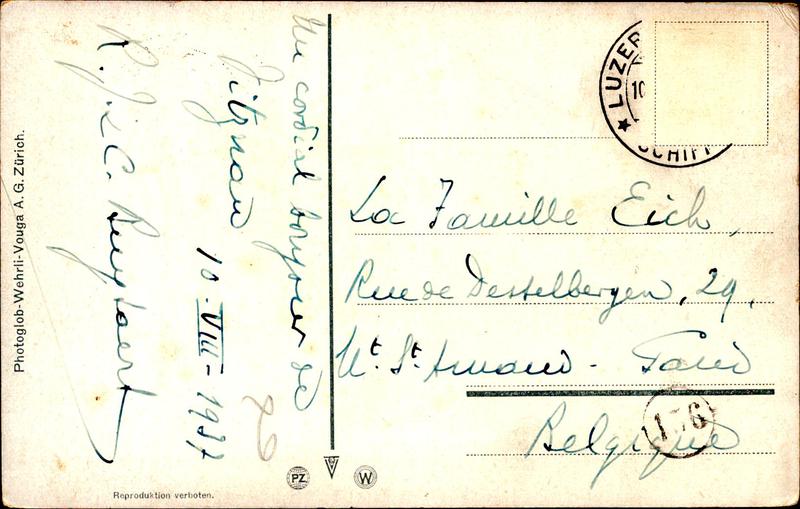 Un cordial bonjour de
Vitznau
10-VIII-1937
La Famille Eich,
Rue de Desselbergen, 29,
Mt. St. Amand - Gand
Belgique
LUZER
10
SCHIFF
1176
PZ
W
Photoglob-Wehrli-Vouga A. G. Zürich.
Reproduktion verboten.